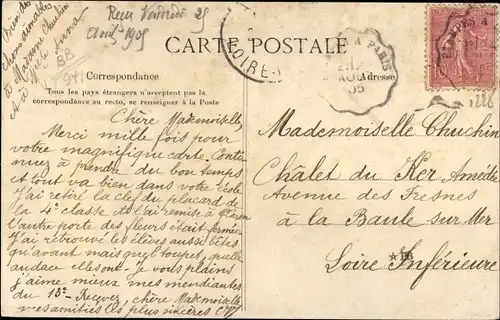 Reçu Vendredi 25
Août 1905
Bien des
choses aimables
à Madame Chuchin
et à Melle Anna
BB
CARTE POSTALE
Correspondance
Adresse
Tous les pays étrangers n'acceptent pas la
correspondance au recto, se renseigner à la Poste
A PARIS
AOU
05
LOIRE
1228
Chère Mademoiselle,
Merci mille fois pour
votre magnifique carte. Conti
nuez à prendre du bon temps
et tout va bien dans votre école
J'ai retiré la clef du placard de
la 4e classe et l'ai remise à
L'autre porte des fleurs était fermée
J'ai retrouvé les élèves aussi bêtes
qu'avant mais quel toupet, quelle
audace elles ont. Je vous plains
j'aime mieux mes mendiantes
du 13e. Recevez, chère Mademoiselle
mes amitiés les plus sincères
Mademoiselle Chuchin
Châlet du Ker Amédée
Avenue des Fresnes
à la Baule sur Mer
Loire Inférieure